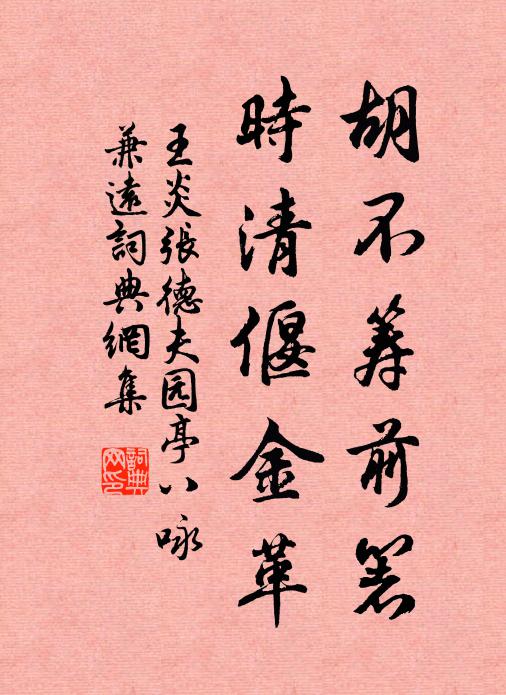 胡不筹前箸
時清偃金革
王炎張德夫园亭八咏
兼遠詞典網集
詞典网印